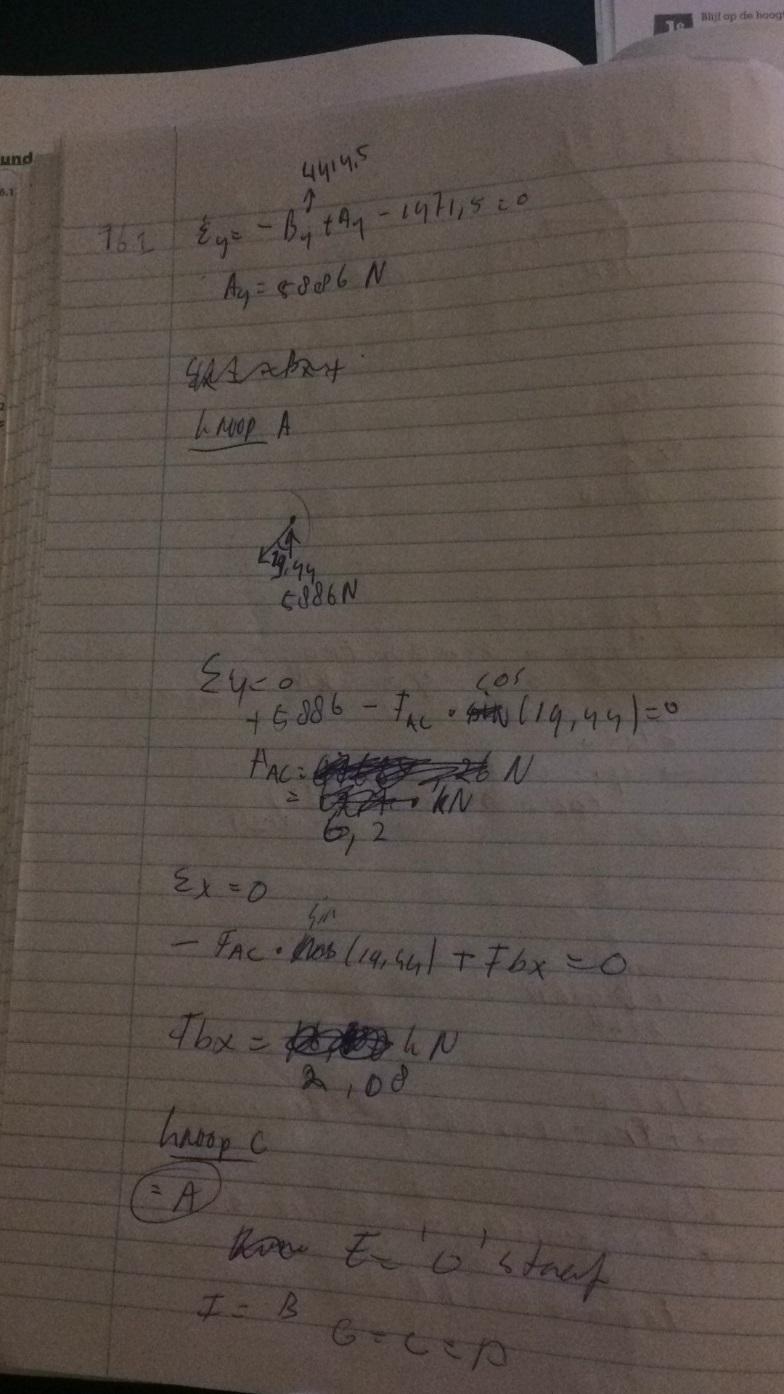 Blijf op de hoogt
und
6.1
4414,5
↑
Σy = - By + Ay - 1471,5 = 0
Ay = 5886 N
knoop A
19,44
5886N
Σy = 0
cos
+ 5886 - FAC · (19,44) = 0
FAC = N
= kN
6,2
Σx = 0
sin
- FAC · (19,44) + Fbx = 0
Fbx = kN
2,08
knoop C
= A
E = '0' staaf
I = B
G = C = A